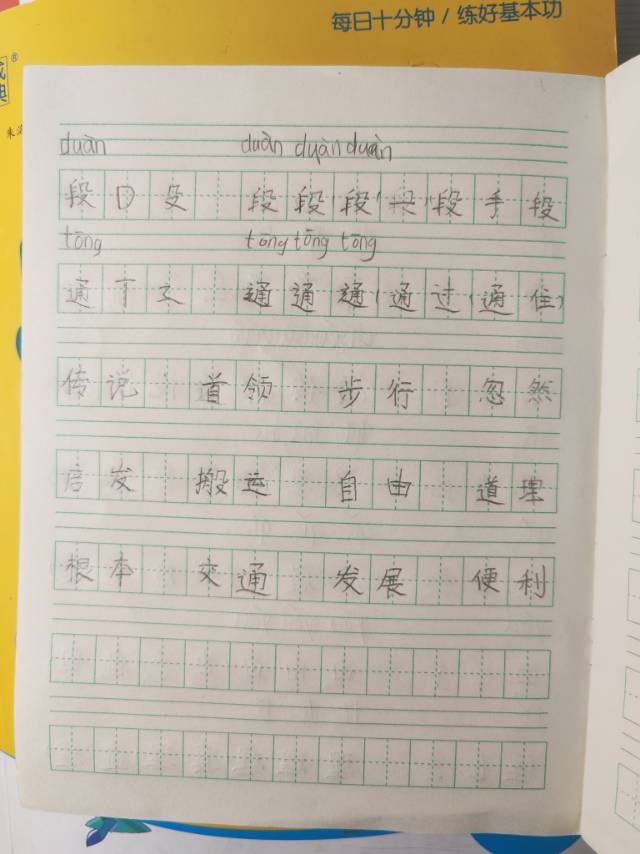 每日十分钟 / 练好基本功
duàn duàn duàn duàn
段 殳 段 段 段 (一段) (手段
tōng tōng tōng tōng
通 辶 通 通 通 (通过) (通住)
传说 首领 步行 忽然
启发 搬运 自由 道理
根本 交通 发展 便利